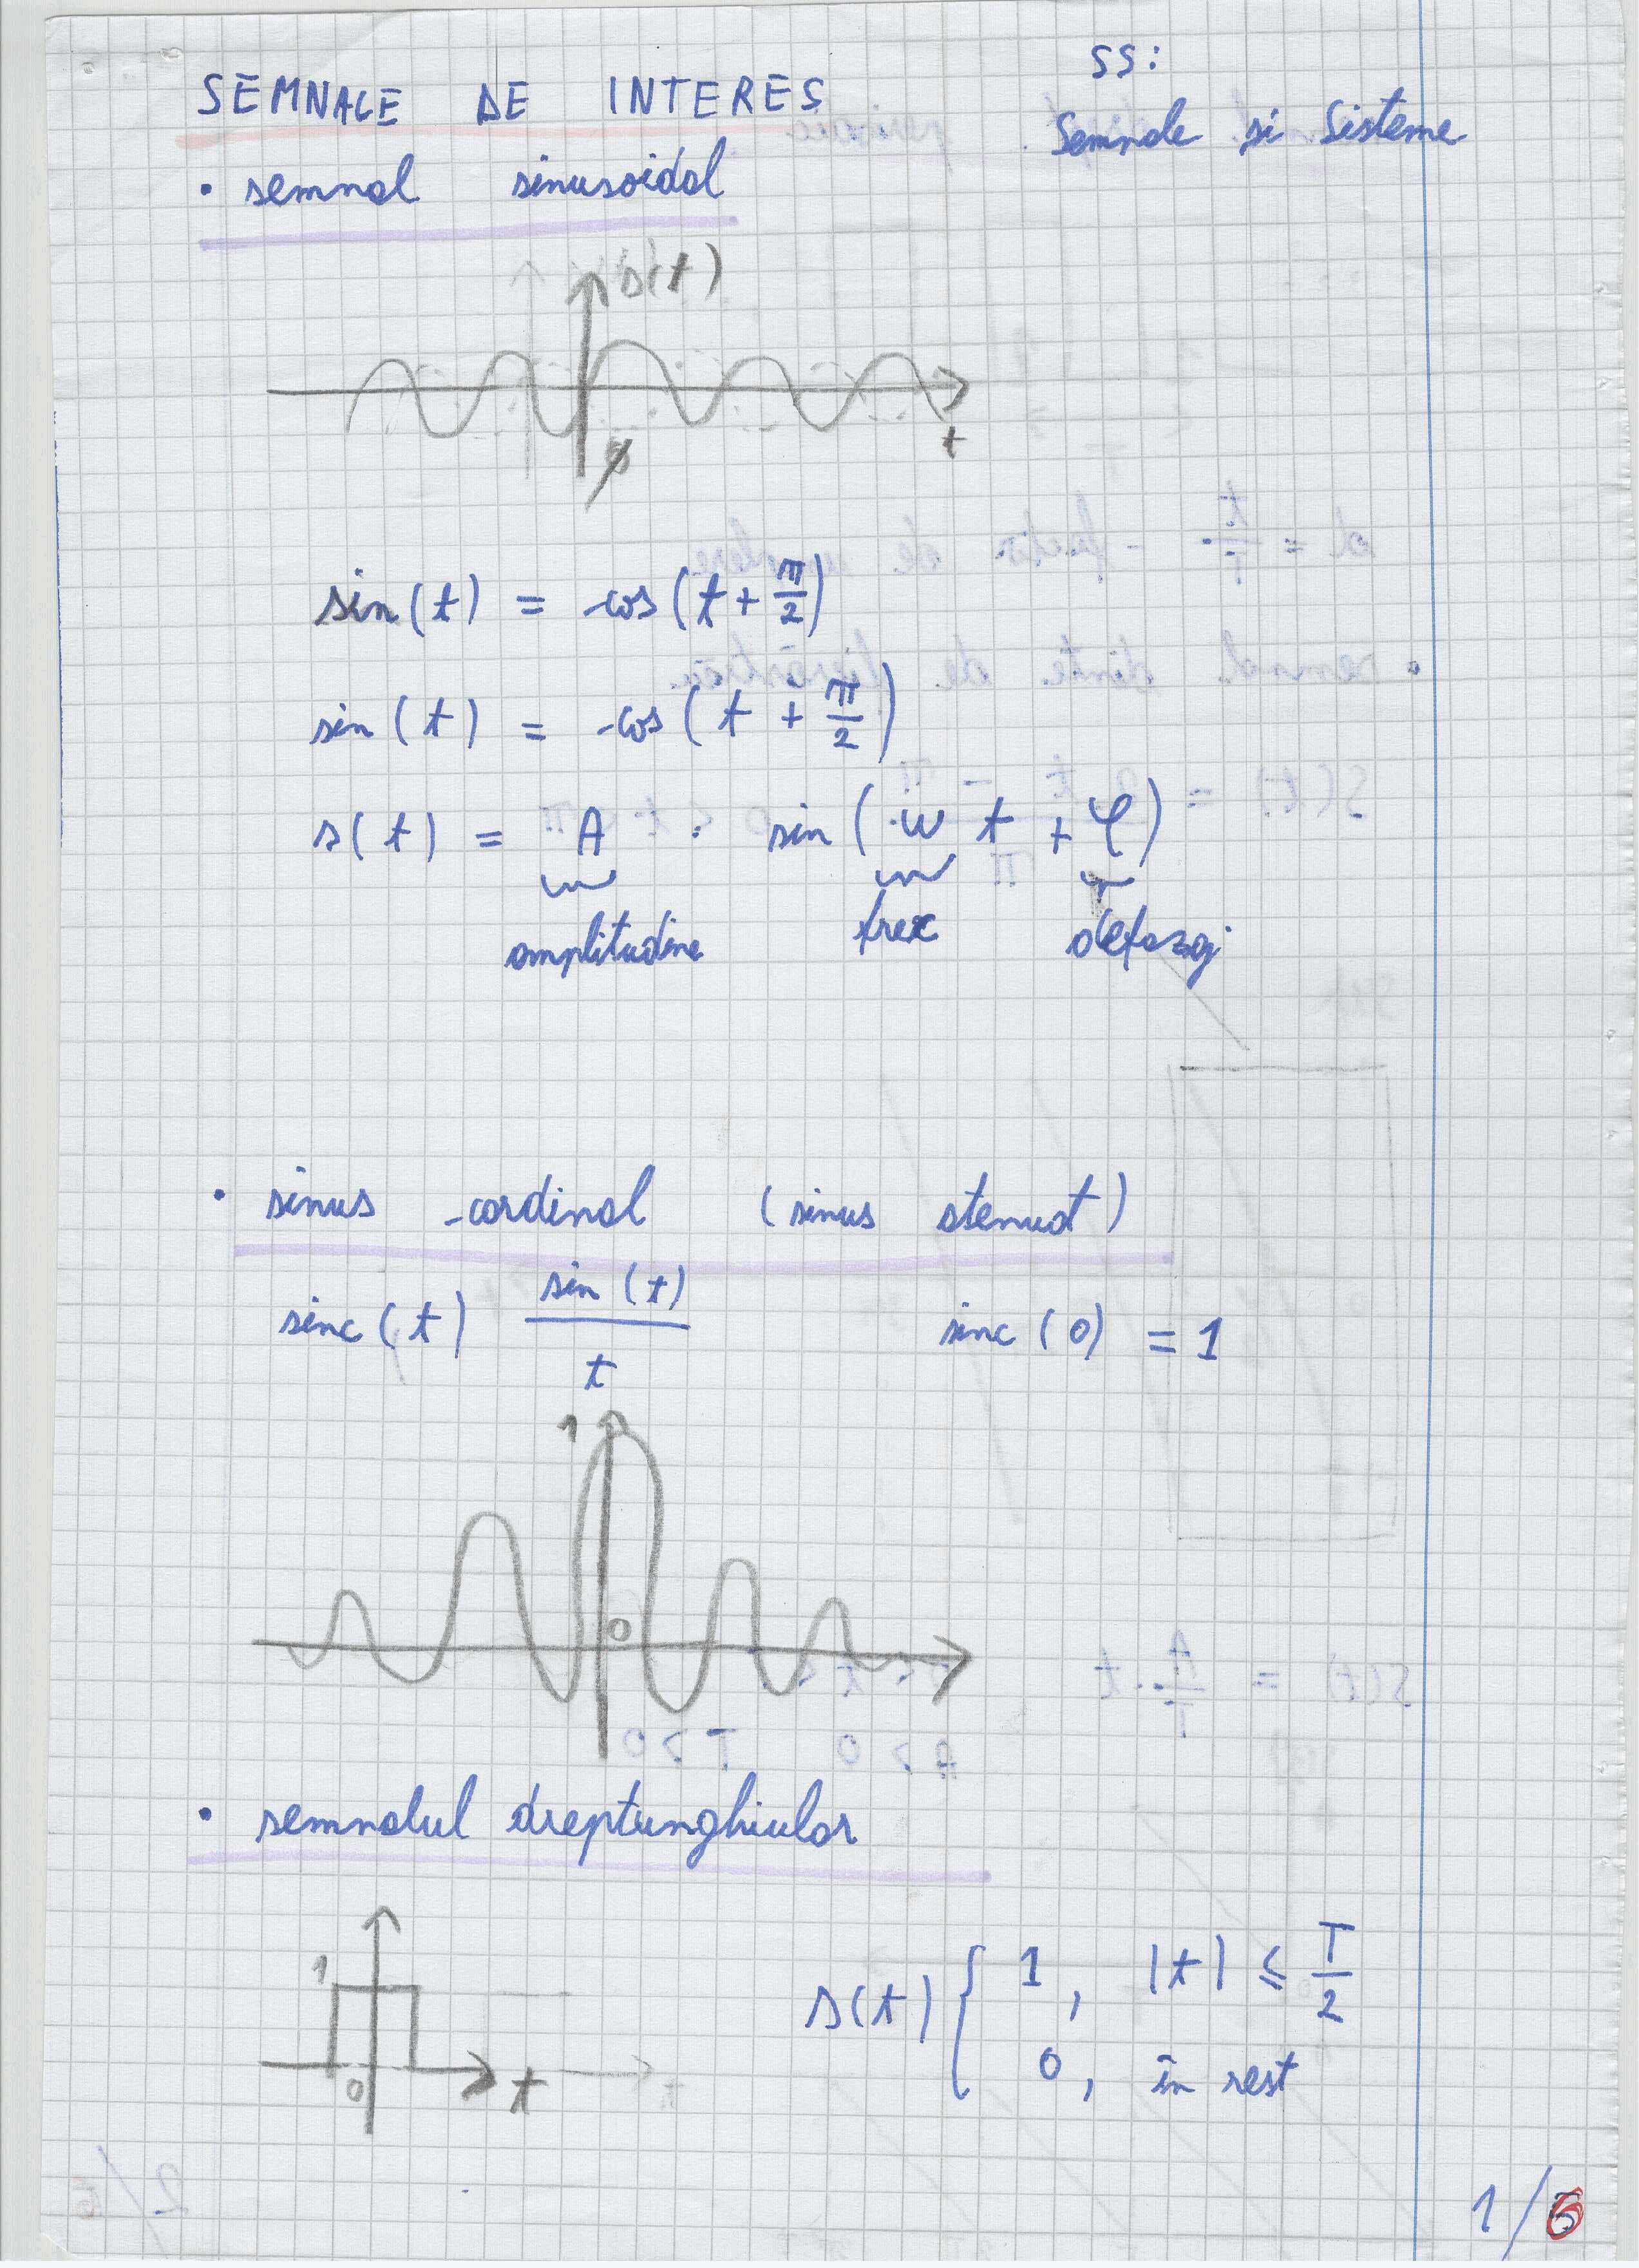 SS:
SEMNALE DE INTERES
Semnale si Sisteme
• semnal sinusoidal
s(t)
0
t
sin(t) = cos(t + π/2)
sin(t) = cos(t + π/2)
s(t) = A · sin(ω t + φ)
amplitudine frec defazaj
• sinus cardinal (sinus atenuat)
sinc(t) sin(t)/t sinc(0) = 1
1
0
• semnalul dreptunghiular
1
0 t
s(t) { 1, |t| ≤ T/2
0, în rest
1/6